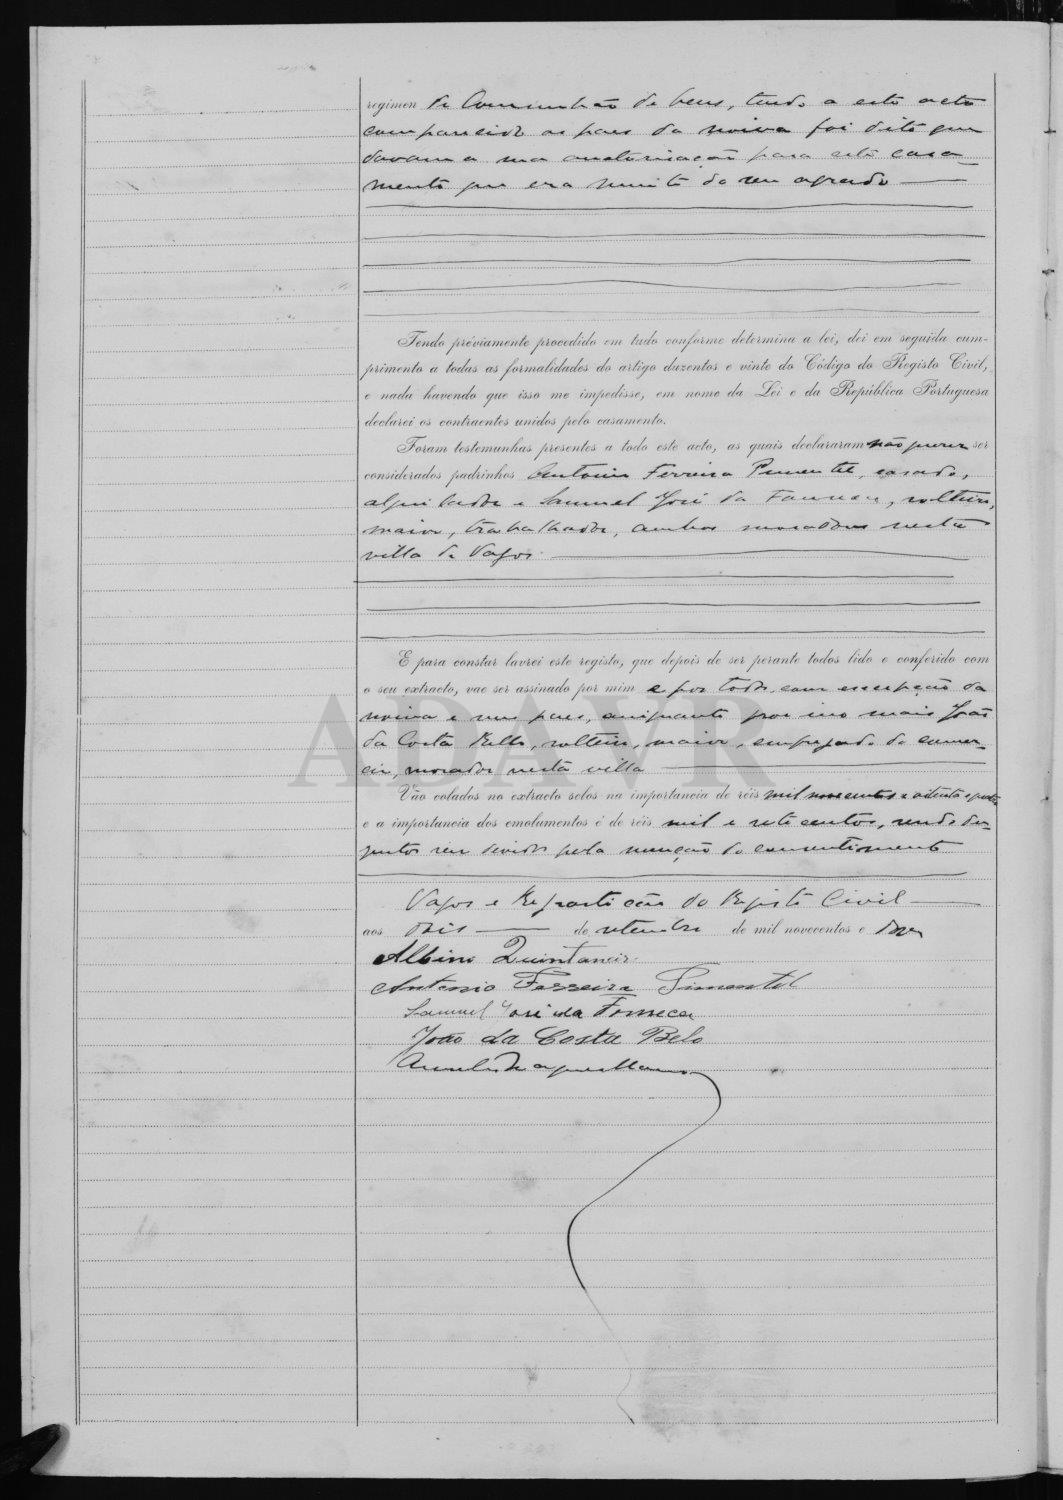 regimen de Comunhão de bens, tendo a este acto
comparecido os paes da noiva foi dito que
davam a sua auctorisação para este casa-
mento que era muito do seu agrado
Tendo préviamente procedido em tudo conforme determina a lei, dei em seguida cum-
primento a todas as formalidades do artigo duzentos e vinte do Código do Registo Civil,
e nada havendo que isso me impedisse, em nome da Lei e da República Portuguesa
declarei os contraentes unidos pelo casamento.
Foram testemunhas presentes a todo este acto, as quais declararam não querer ser
considerados padrinhos Antonio Ferreira Pimentel, casado,
alquilador e Samuel José da Fonseca, solteiro,
maior, trabalhador, ambos moradores nesta
villa de Vagos.
E para constar lavrei este registo, que depois de ser perante todos lido e conferido com
o seu extracto, vae ser assinado por mim e por todos com excepção da
noiva e seus paes, assignando por isso mais João
da Costa Bello, solteiro, maior, empregado do comer-
cio, morador nesta villa
Vão colados no extracto selos na importancia de réis mil novecentos e oitenta e
e a importancia dos emolumentos é de réis mil e sete centos, sendo du-
zentos reis devidos pela menção do consentimento
Vagos e Repartição do Registo Civil
aos dois de setembro de mil novecentos e doze
Albino Quintaneiro
Antonio Ferreira Pimentel
Samuel José da Fonseca
João da Costa Belo
ADAVR